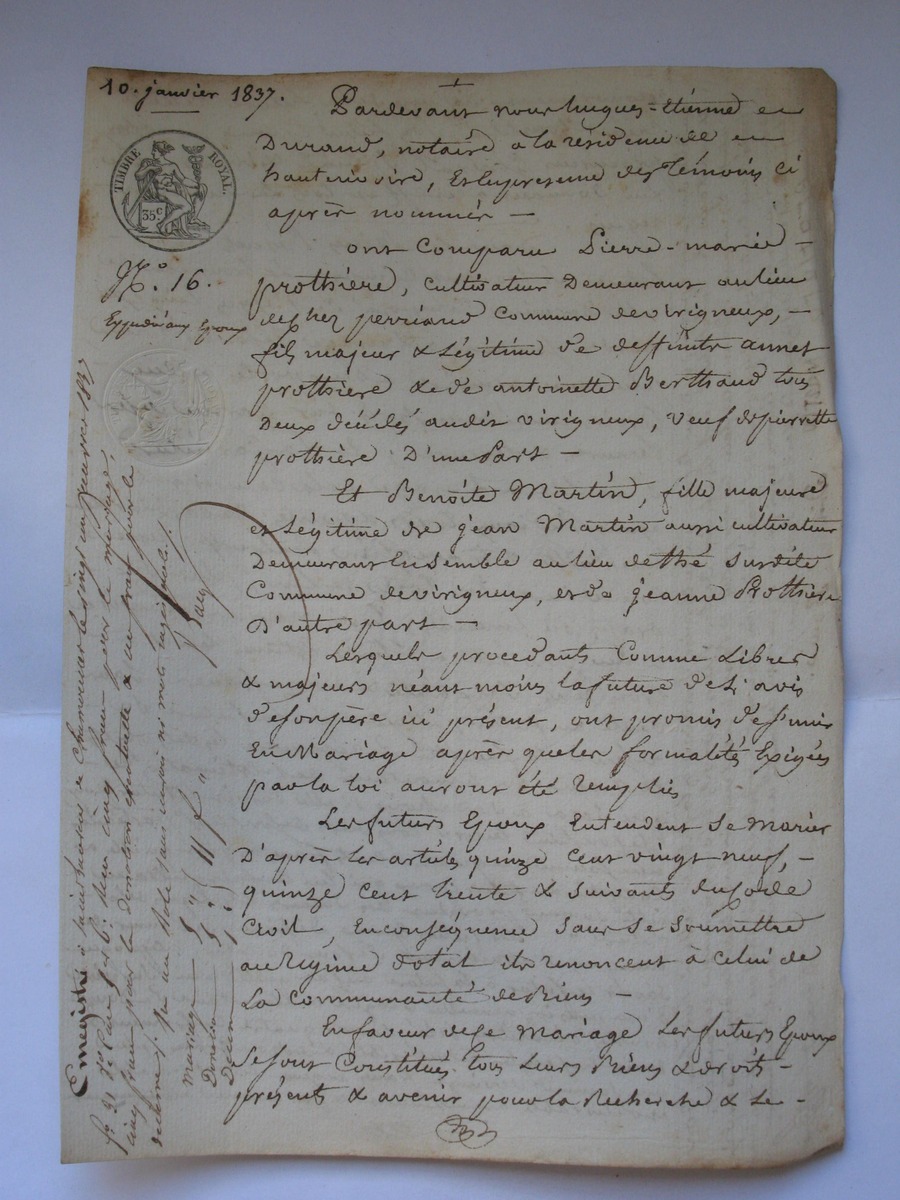 10. janvier 1837.
TIMBRE ROYAL.
35 c
N.o 16.
Expedié aux Epoux
Pardevant nous hugues-étienne
Durand, notaire à la résidence de
hauterivoire, Et en presence des témoins ci
après nommés —
ont Comparu Pierre-marie-
prothière, cultivateur Demeurant au lieu
de chez perriaud Commune de virigneux, —
fils majeur & Légitime de deffunts annet
prothière & de antoinette Berthaud tous
Deux décédés audit virigneux, veuf de pierrette
prothière D'une Part —
Et Benoite Martin, fille majeure
et Légitime de jean Martin aussi cultivateur
Demeurant Ensemble au lieu de thé susdite
Commune de virigneux, et de jeanne Prothière
D'autre part —
Lesquels procedants Comme Libres
& majeurs néant moins la future de L'avis
de son père ici présent, ont promis de s'unir
En Mariage après que les formalités Exigées
par la loi auront été remplies
Les futurs Epoux Entendent se Marier
D'après les articles quinze cent vingt neuf, —
quinze cent trente & suivants du code
Civil, En conséquence sans se soumettre
au Régime dotal ils renoncent à celui de
La Communauté de Biens —
En faveur de ce Mariage Les futurs Epoux
se sont Constitués tous Leurs Biens & droits —
présents & avenir pour la Recherche & Le —
Enregistré à saint simphorien à chamousset le vingt cinq janvier 1837
cinq francs pour le mariage,
cinq francs pour la donation éventuelle & un franc pour le
décime.
mariage — 5 "
Donation — 5 "
Décime — 1 "
11 f "